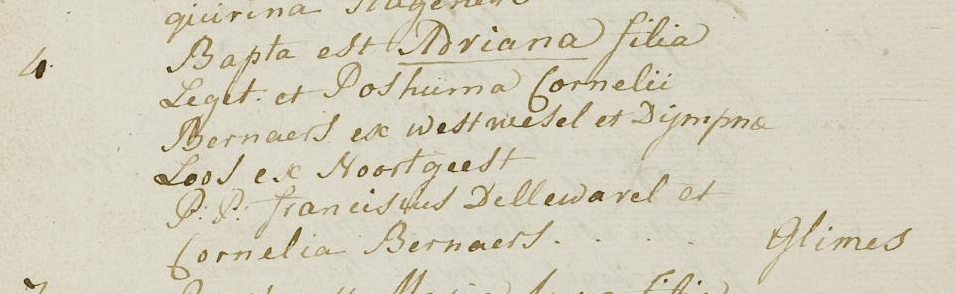 quirina
4. Bapta est Adriana filia
Leget. et Poshuma Cornelii
Bernaers ex westwesel et Dijmpnæ
Loos ex Noortgeest
P: P: franciscus Dellewarel et
Cornelia Bernaers. . . . . Glimes
7 filia